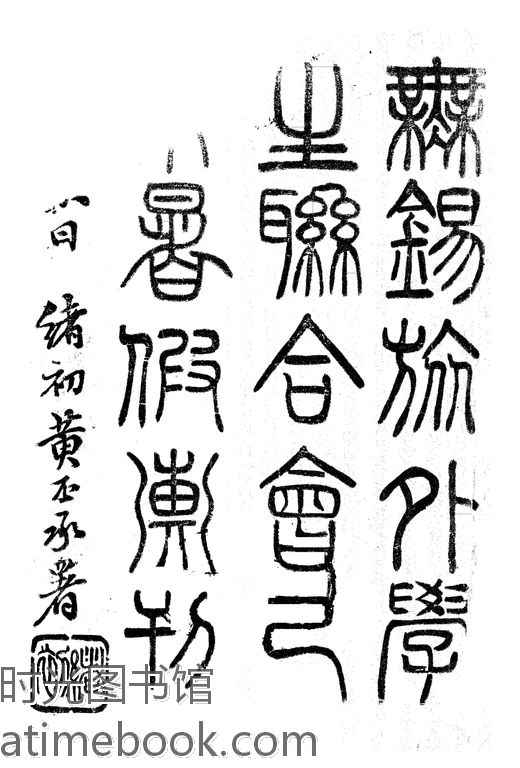 無錫旅外學
生聯合會己
暑假刊
日 緒初黃丕承署
时光图书馆
atimebook.com